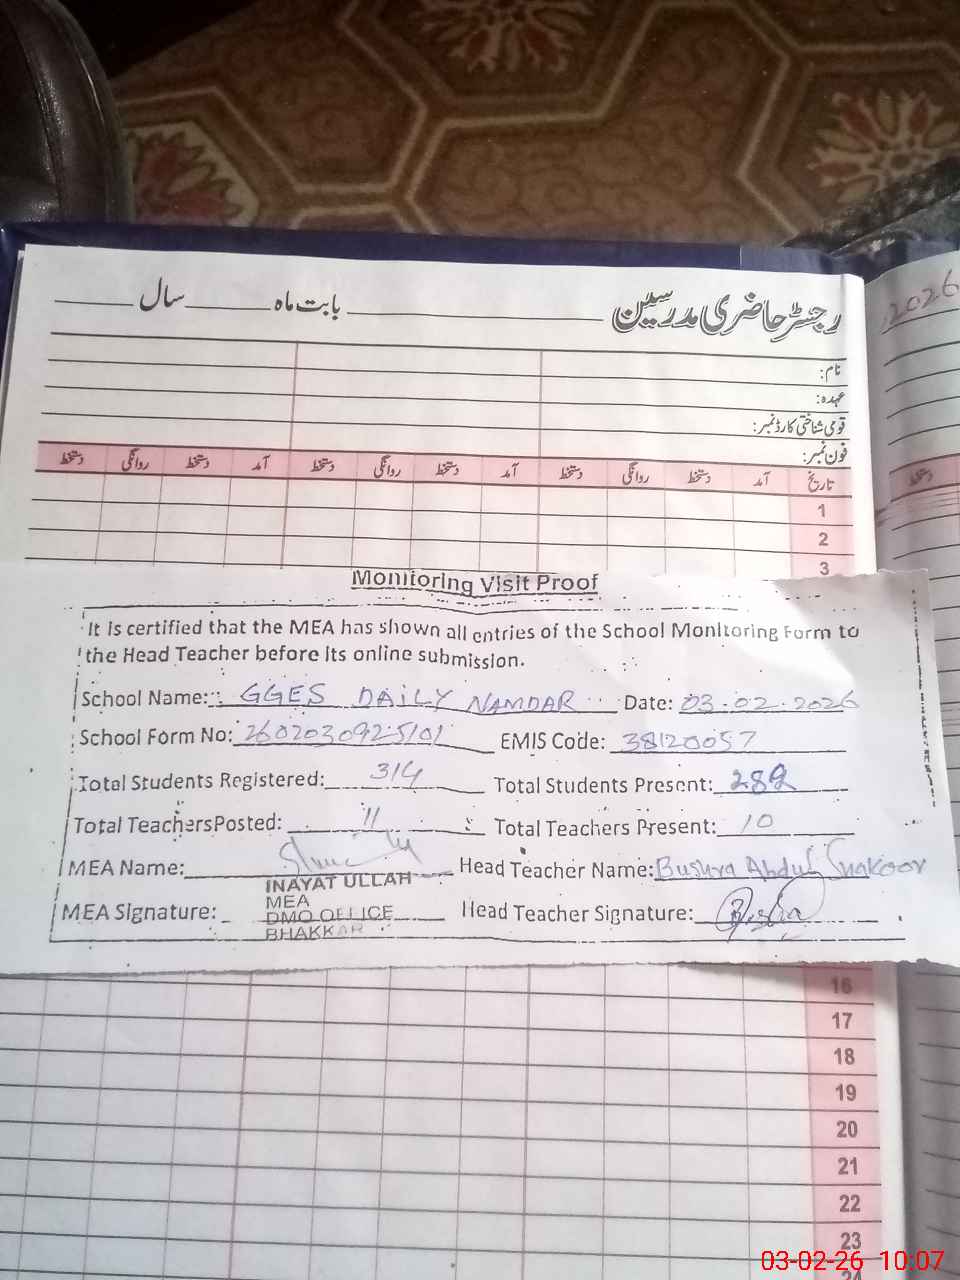 رجسٹر حاضری مدرسین ــــــ بابت ماہ ــــــ سال ــــــ
2026
نام:
عہدہ:
قومی شناختی کارڈ نمبر:
فون نمبر:
تاریخ آمد دستخط روانگی دستخط آمد دستخط روانگی دستخط آمد دستخط روانگی دستخط
دستخط
1
2
3
Monitoring Visit Proof
It is certified that the MEA has shown all entries of the School Monitoring Form to
the Head Teacher before its online submission.
School Name: GGES DAILY NAMDAR Date: 03.02.2026
School Form No: 260203092-5101 EMIS Code: 38120057
Total Students Registered: 314 Total Students Present: 282
Total Teachers Posted: 11 Total Teachers Present: 10
MEA Name: Head Teacher Name: Bushra Abdul Shakoor
INAYAT ULLAH
MEA
MEA Signature: DMO OFFICE Head Teacher Signature: Bushra
BHAKKAR
16
17
18
19
20
21
22
23
24
03-02-26 10:07